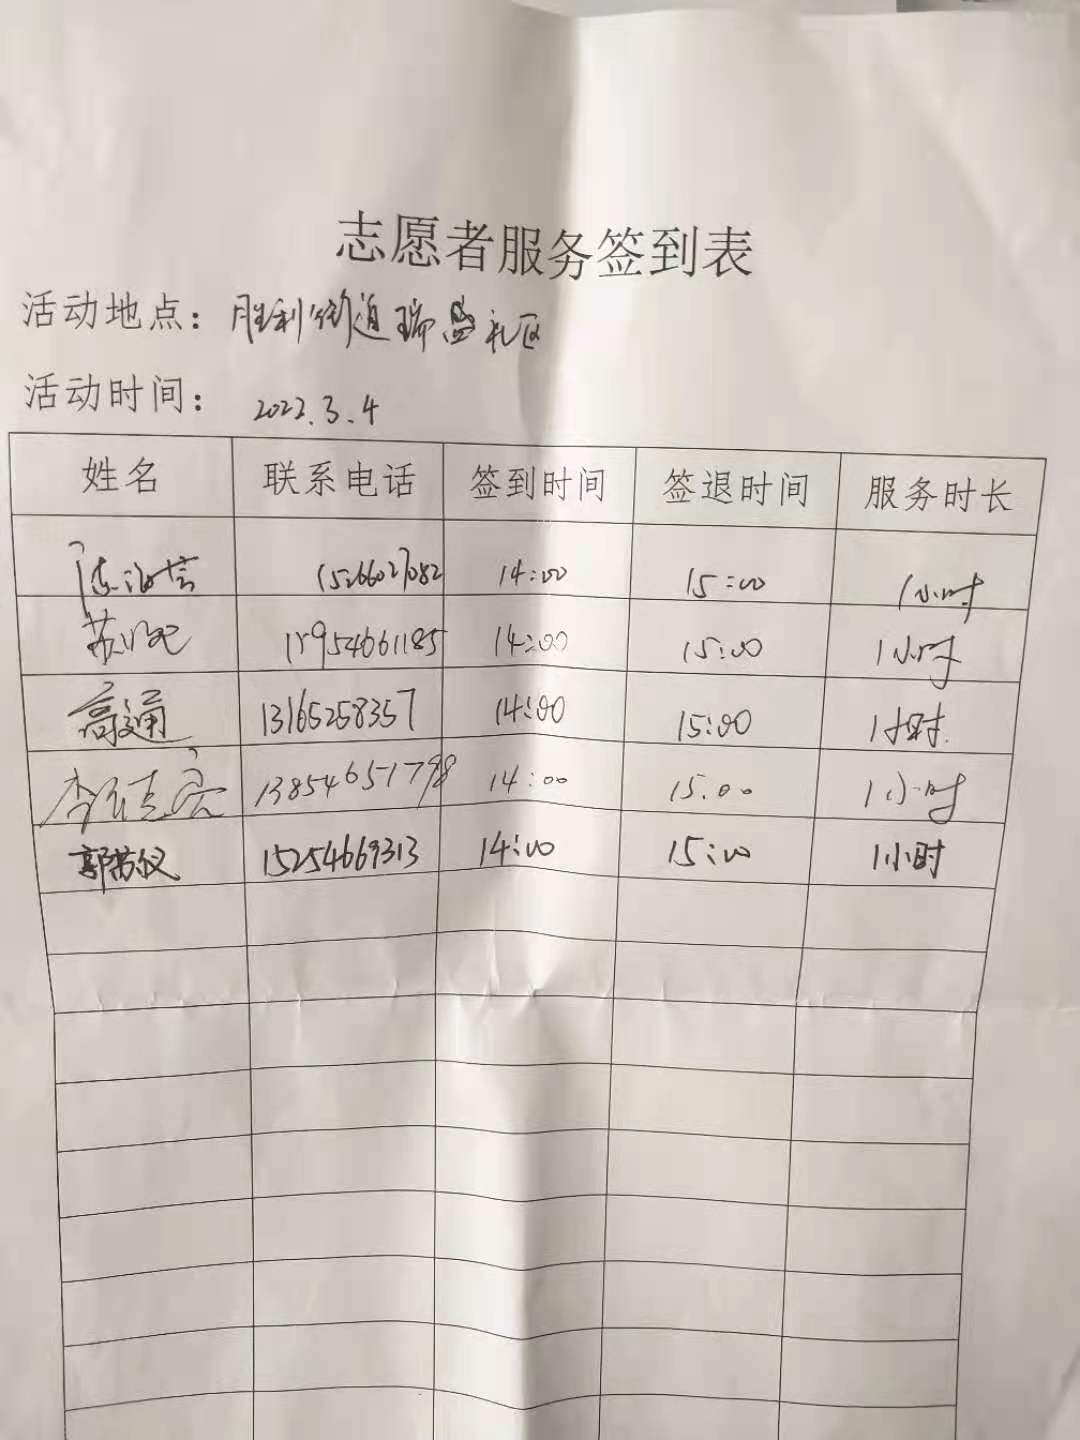 志愿者服务签到表
活动地点：胜利街道瑞盛社区
活动时间：2022.3.4
姓名 联系电话 签到时间 签退时间 服务时长
15266027082 14:00 15:00 1小时
苏 14:00 15:00 1小时
高通 13165258357 14:00 15:00 1小时
李 13854651798 14:00 15:00 1小时
郭 15254669313 14:00 15:00 1小时